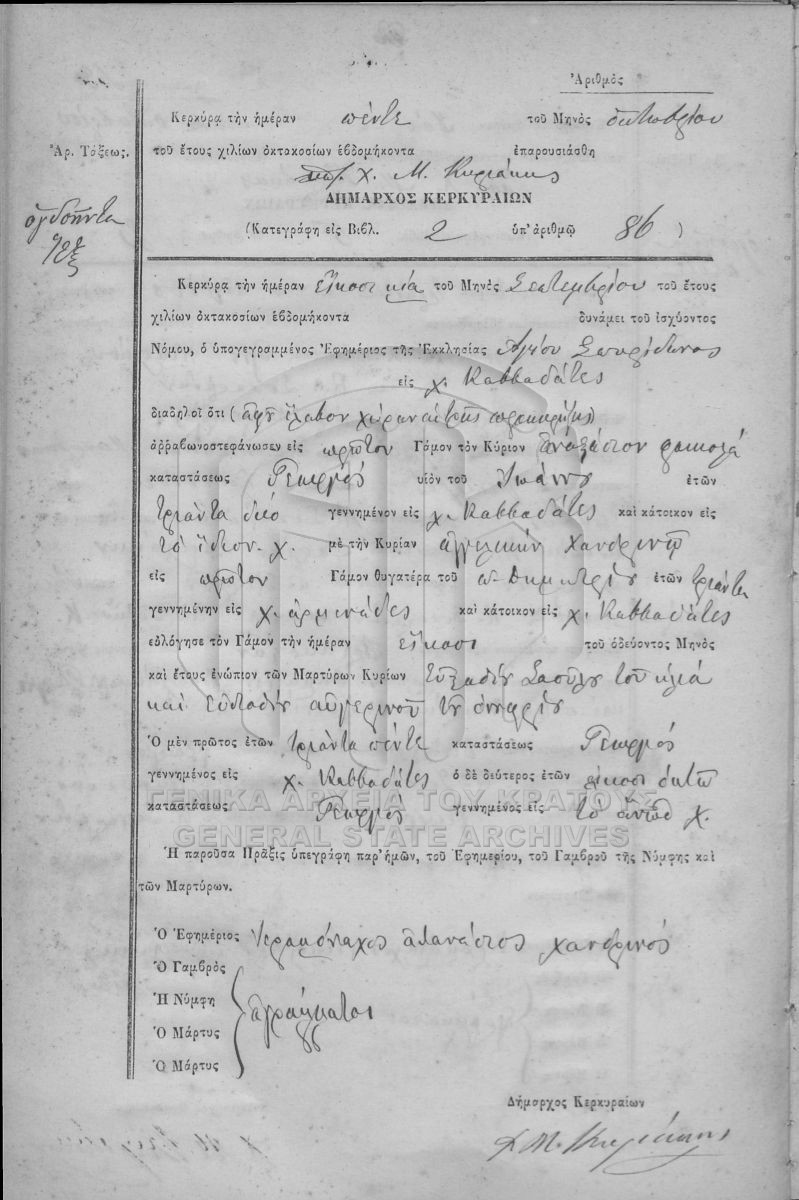 Ἀριθμὸς
Κερκύρᾳ τὴν ἡμέραν πέντε τοῦ Μηνὸς ὀκτωβρίου
Ἀρ. Τάξεως. τοῦ ἔτους χιλίων ὀκτακοσίων ἑβδομήκοντα ἐπαρουσιάσθη
χ. Μ. Κυριάκης
ΔΗΜΑΡΧΟΣ ΚΕΡΚΥΡΑΙΩΝ
ὀγδοῆντα ἕξ
(Κατεγράφη εἰς Βιβλ. 2 ὑπ' ἀριθμῷ 86 )
Κερκύρᾳ τὴν ἡμέραν εἴκοσι μία τοῦ Μηνὸς Σεπτεμβρίου τοῦ ἔτους
χιλίων ὀκτακοσίων ἑβδομήκοντα δυνάμει τοῦ ἰσχύοντος
Νόμου, ὁ ὑπογεγραμμένος Ἐφημέριος τῆς Ἐκκλησίας Ἁγίου Σπυρίδωνος
εἰς χ. Καββαδάτες
διαδηλοῖ ὅτι (ἀφοῦ ἔλαβον χώραν αἱ τρεῖς προκηρύξεις)
ἀρραβωνοστεφάνωσεν εἰς πρῶτον Γάμον τὸν Κύριον ἀναστάσιον
καταστάσεως Γεωργός υἱὸν τοῦ Ἰωάννου ἐτῶν
τριάντα δύο γεννημένον εἰς χ. Καββαδάτες καὶ κάτοικον εἰς
τὸ ἴδιον. χ. μὲ τὴν Κυρίαν ἀγγελικὴν χανδρινοῦ
εἰς πρῶτον Γάμον θυγατέρα τοῦ π. Δημητρίου ἐτῶν τριάντα
γεννημένην εἰς χ. ἀρμενάδες καὶ κάτοικον εἰς χ. Καββαδάτες
εὐλόγησε τὸν Γάμον τὴν ἡμέραν εἴκοσι τοῦ ὁδεύοντος Μηνὸς
καὶ ἔτους ἐνώπιον τῶν Μαρτύρων Κυρίων τοῦ ἠλία
καὶ εὐσταθίου αὐγερινοῦ τοῦ
Ὁ μὲν πρῶτος ἐτῶν τριάντα πέντε καταστάσεως Γεωργός
γεννημένος εἰς χ. Καββαδάτες ὁ δὲ δεύτερος ἐτῶν εἴκοσι ὀκτώ
καταστάσεως Γεωργός γεννημένος εἰς τὸ ἄνωθ χ.
ΓΕΝΙΚΑ ΑΡΧΕΙΑ ΤΟΥ ΚΡΑΤΟΥΣ
GENERAL STATE ARCHIVES
Ἡ παροῦσα Πρᾶξις ὑπεγράφη παρ' ἡμῶν, τοῦ Ἐφημερίου, τοῦ Γαμβροῦ τῆς Νύμφης καὶ
τῶν Μαρτύρων.
Ὁ Ἐφημέριος Ἱερομόναχος ἀθανάσιος χανδρινός
Ὁ Γαμβρὸς
Ἡ Νύμφη ἀγράμματοι
Ὁ Μάρτυς
Ὁ Μάρτυς
Δήμαρχος Κερκυραίων
χ. Μ. Κυριάκης